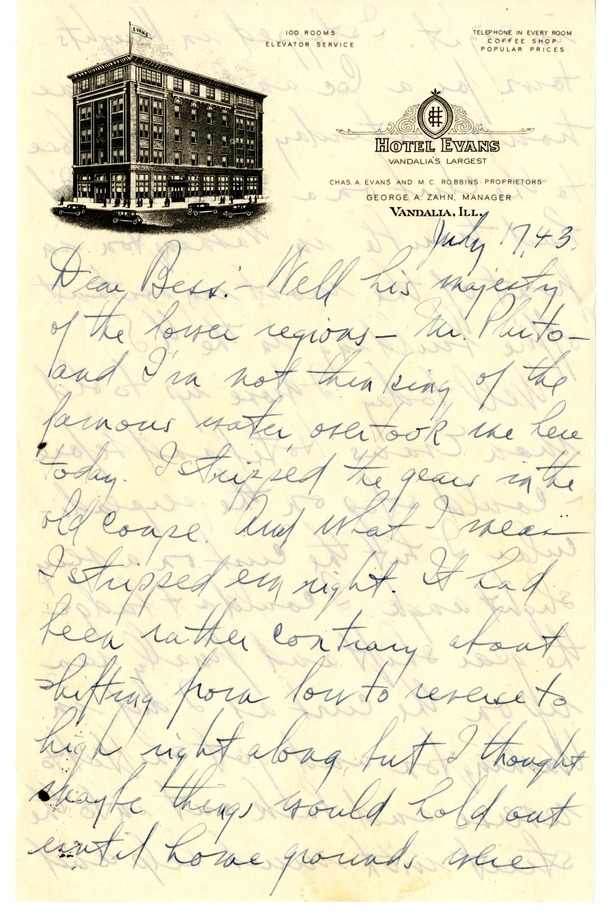 EVANS
100 ROOMS
ELEVATOR SERVICE
TELEPHONE IN EVERY ROOM
COFFEE SHOP
POPULAR PRICES
HOTEL EVANS
VANDALIA'S LARGEST
CHAS. A. EVANS AND M. C. ROBBINS-PROPRIETORS
GEORGE A. ZAHN, MANAGER
VANDALIA, ILL.
July 17, 43.
Dear Bess:- Well his majesty
of the lower regions- Mr. Pluto-
and I'm not thinking of the
famous water, overtook me here
today. I stripped the gears in the
old coupe. And what I mean
I stripped em right. It had
been rather contrary about
shifting from low to reverse to
high right along, but I thought
maybe things would hold out
until home grounds were